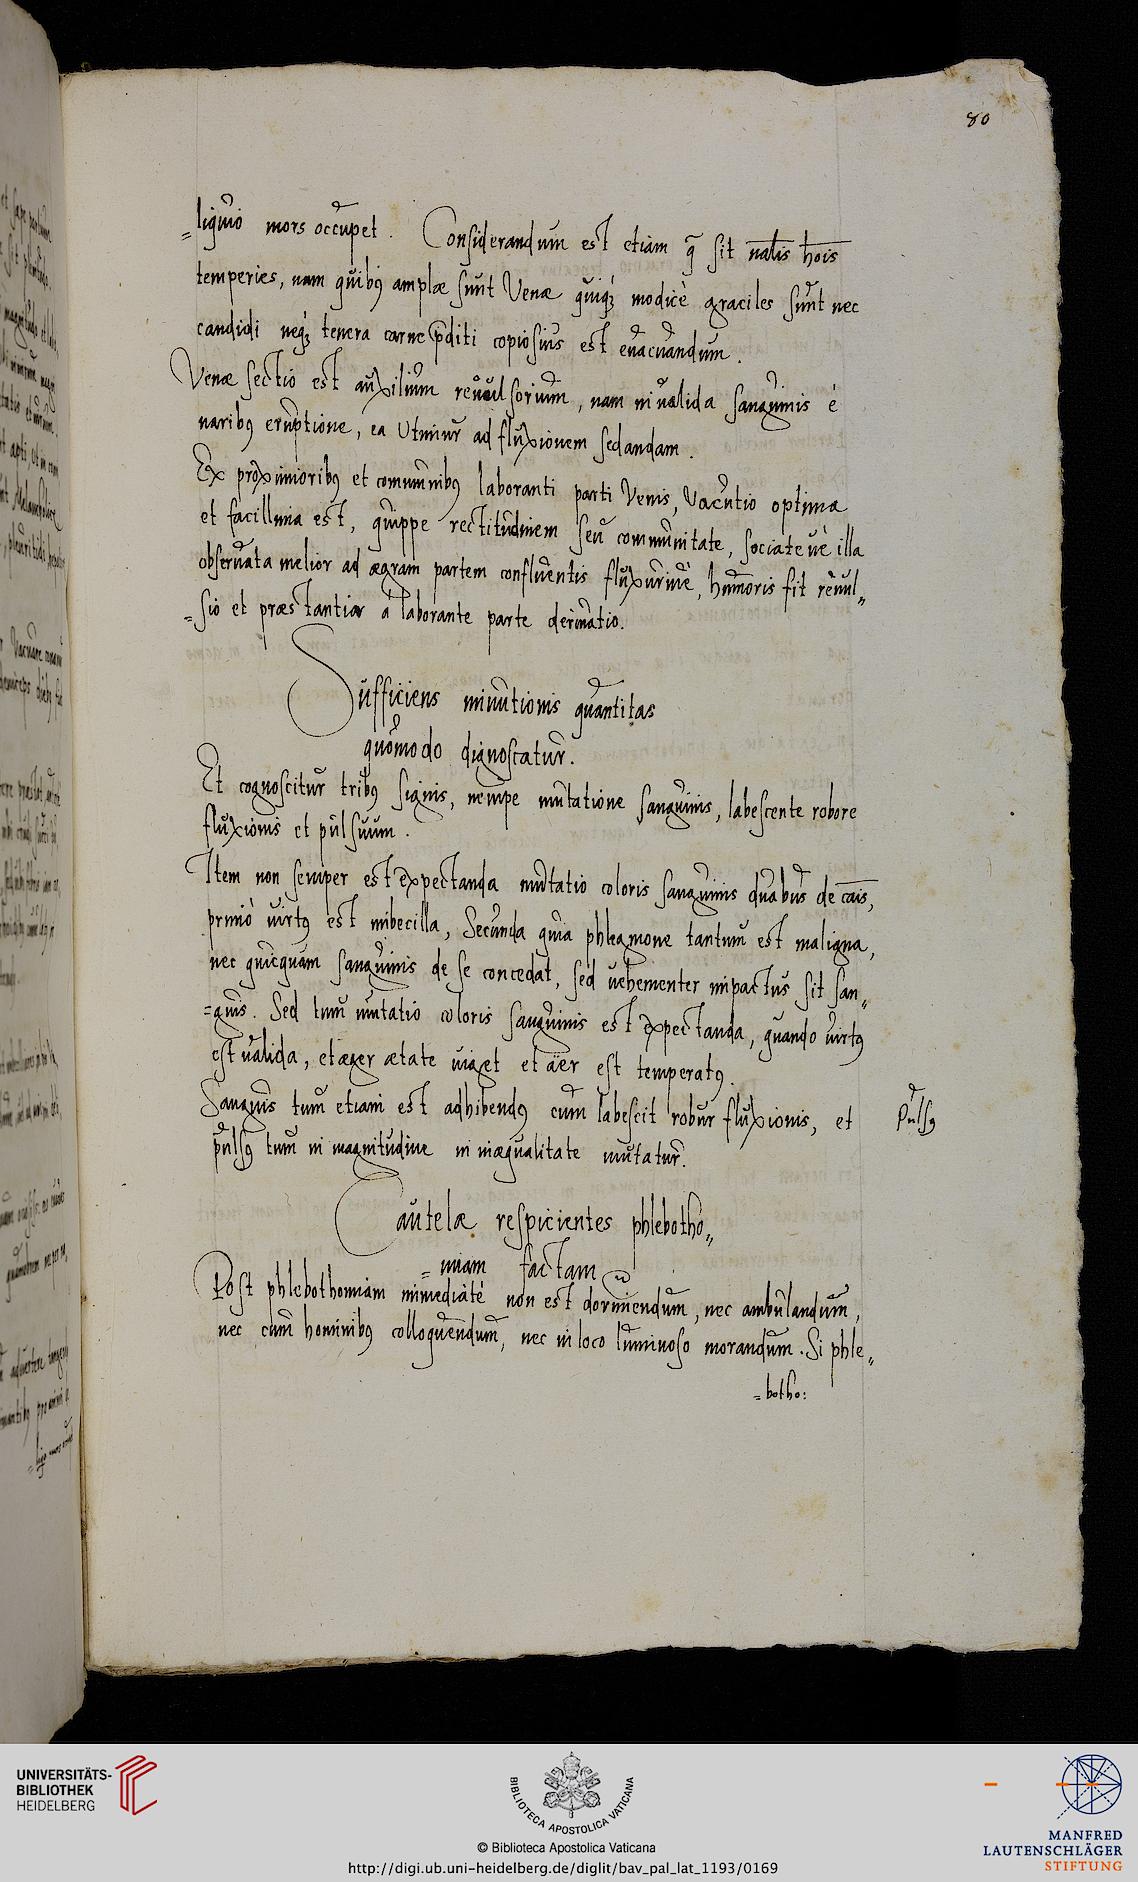 80
=liquio mors occupet. Considerandum est etiam q̃ sit nalis hois
temperies, nam quibq amplæ sunt Venæ quiqȝ modicè graciles sunt nec
candidi neqȝ tenera carne p̃diti copiosius est euacuandum.
Venæ sectio est auxilium reuulsorium, nam in ualida sanguinis è
naribq eruptione, ea Utimur ad fluxionem sedandam.
Ex proximioribq et comunibq laboranti parti Venis, Vacutio optima
et facillima est, quippe rectitudinem seu communitate, sociateuè illa
obseruata melior ad ægram partem confluentis fluxuriuè, humoris fit reuul=
=sio et præstantiar à laborante parte deriuatio.
Sufficiens minutionis quantitas
quomodo dignoscatur.
Et cognoscitur tribq signis, nempe mutatione sanguinis, labescente robore
fluxionis et pulsuum.
Item non semper est expectanda mutatio coloris sanguinis duabus de cais,
primò uirtq est imbecilla, Secunda quia phlegmone tantum est maligna,
nec quicquam sanguinis de se concedat, sed uehementer impactus sit san=
=guis. Sed tum mutatio coloris sanguinis est expectanda, quando uirtq
est ualida, et æger ætate uiget et aër est temperatq.
Sanguis tum etiam est adhibendq cum labescit robur fluxionis, et
pulsq tum in magnitudine in inæqualitate mutatur.
Pulsq
Cautelæ respicientes phlebotho=
=miam factam
Post phlebothomiam immediatè non est dormiendum, nec ambulandum,
nec cum hominibq colloquendum, nec in loco luminoso morandum. Si phle=
=botho:
UNIVERSITÄTS-
BIBLIOTHEK
HEIDELBERG
BIBLIOTECA APOSTOLICA VATICANA
© Biblioteca Apostolica Vaticana
http://digi.ub.uni-heidelberg.de/diglit/bav_pal_lat_1193/0169
MANFRED
LAUTENSCHLÄGER
STIFTUNG